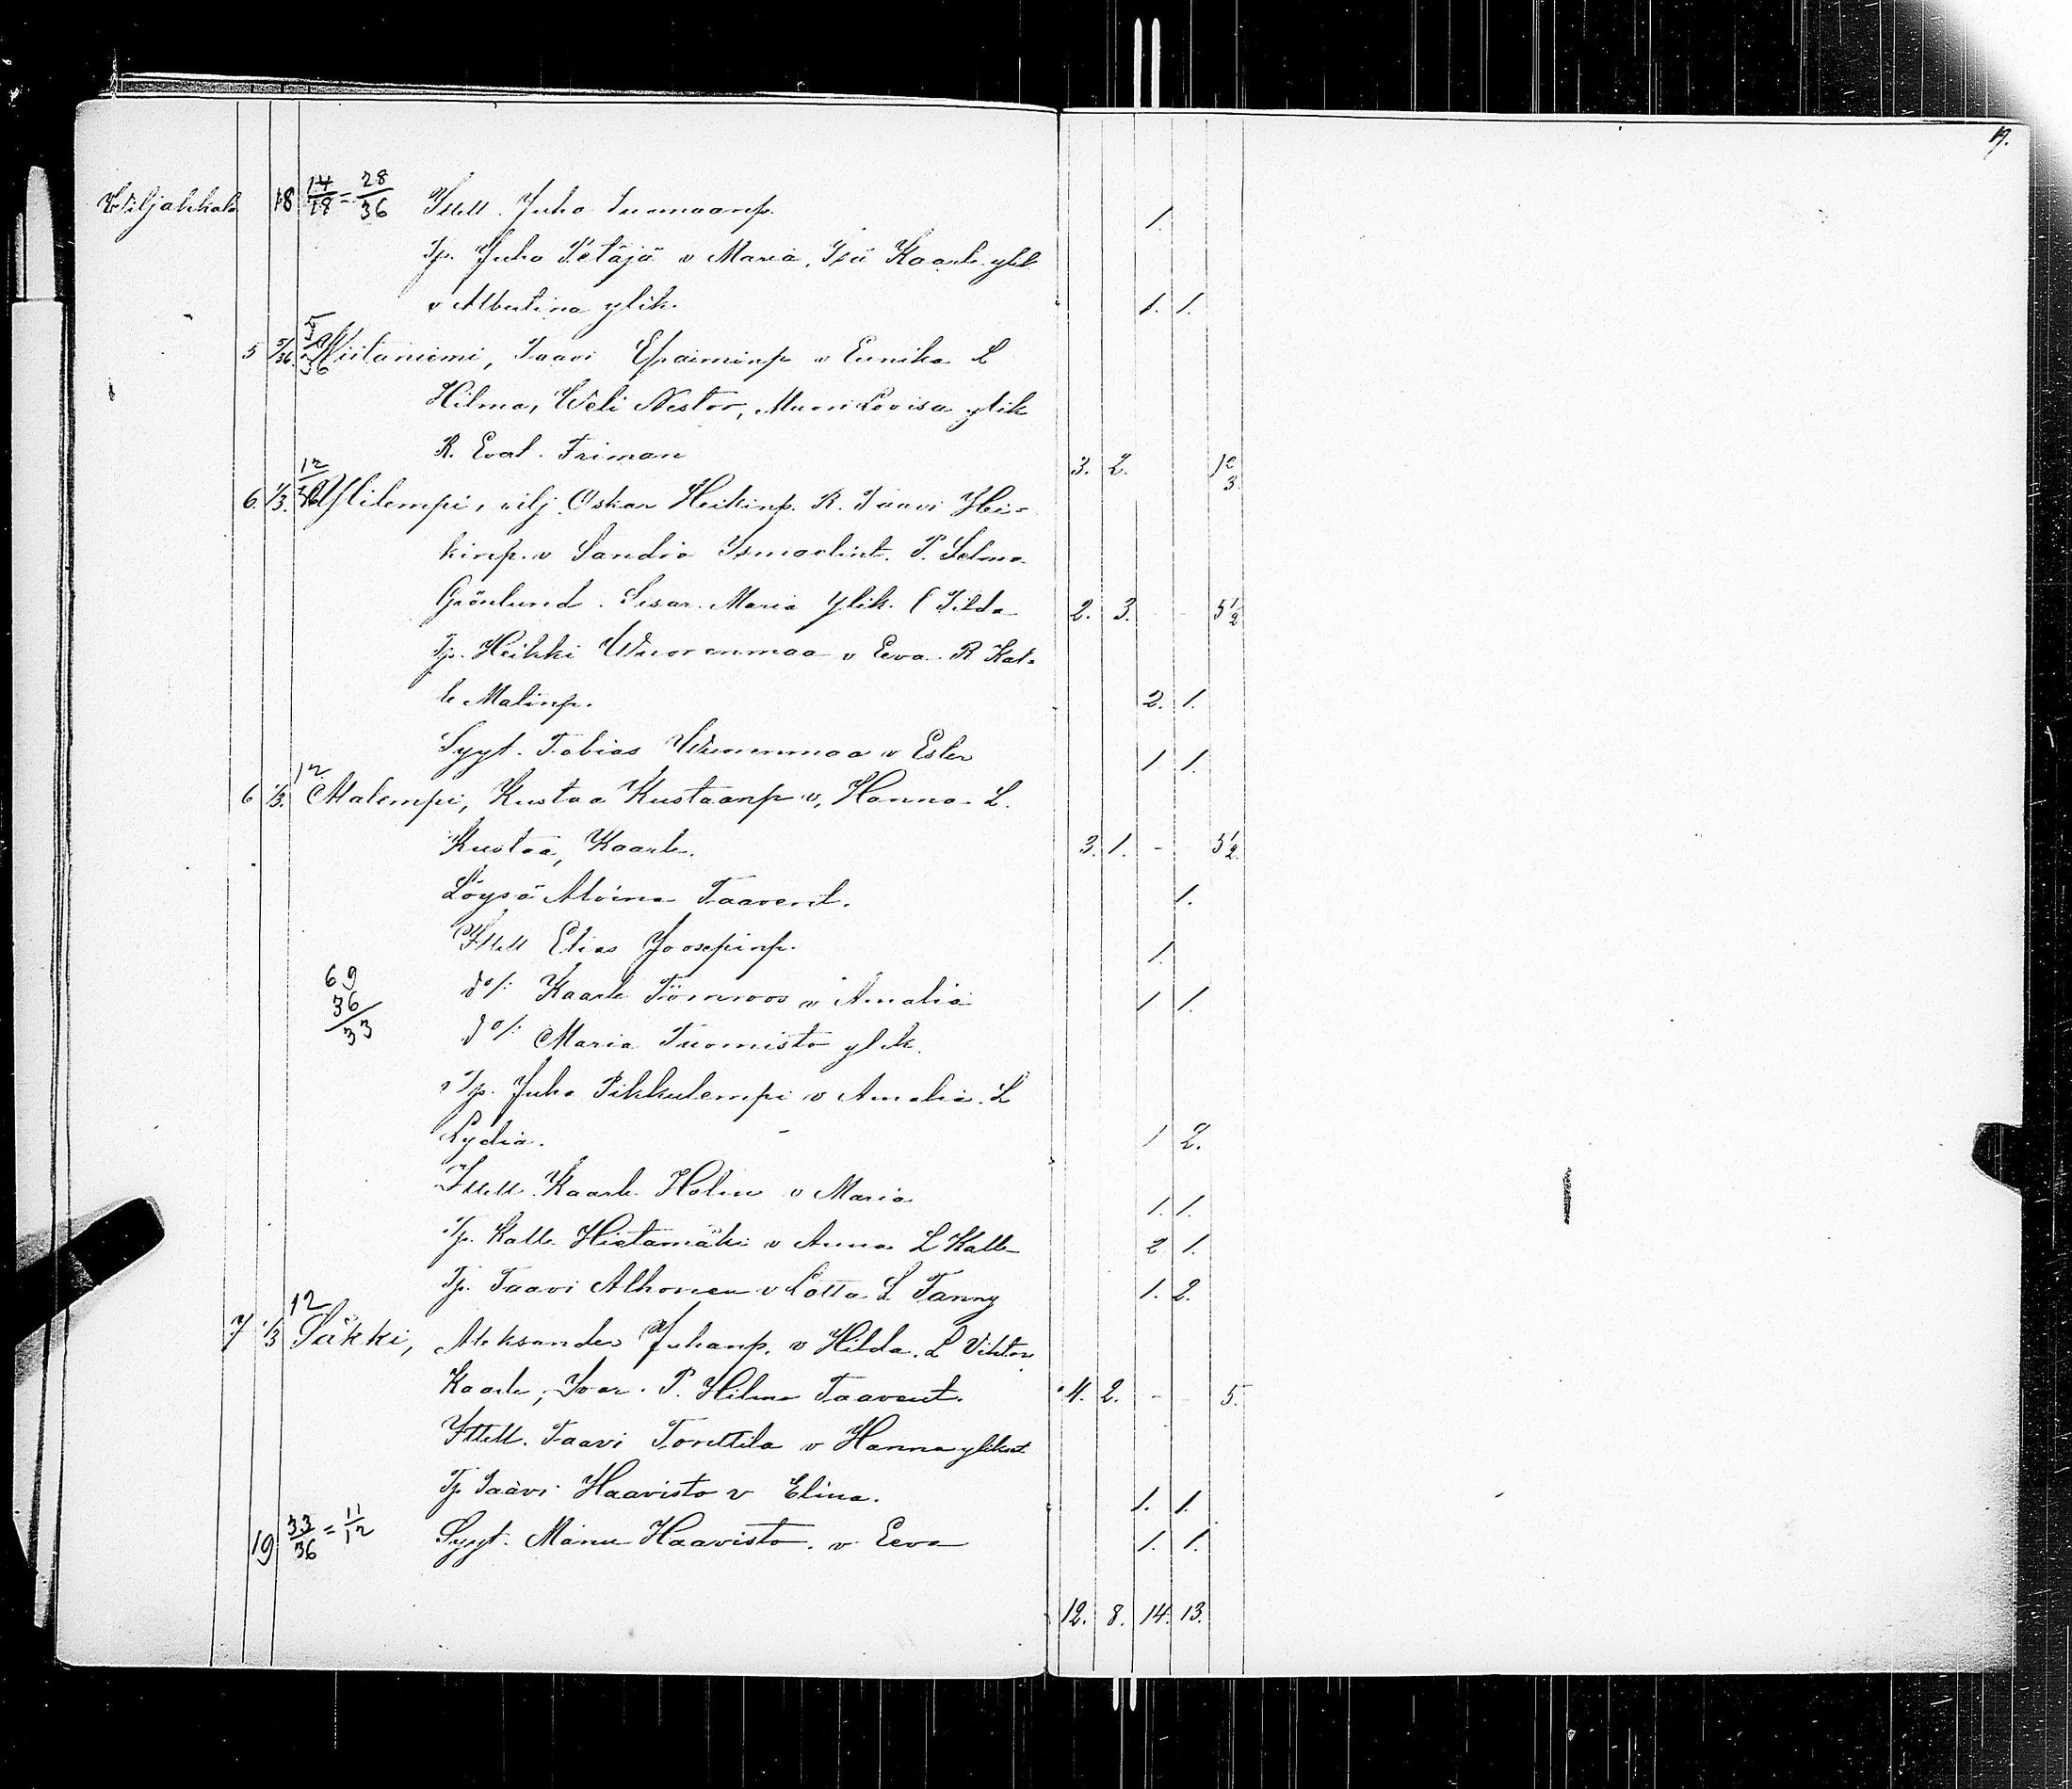 19.
Viljakkala 18 14/18 = 28/36 Ittell. Juho Tuomaanp. 1.
Tp. Juho Petäjä v Maria, Isä Kaarle ylik
v Albertina ylik. 1. 1.
5 5/36 5/36 Niitaniemi, Taavi Efraiminp v Eunika L
Hilma, Weli Nestor, Muori Lovisa ylik
R. Eval. Friman 3. 2. 1 2/3
6. 1/3. 12/36 Ylilempi, vilj. Oskar Heikinp. R. Taavi Hei-
kinp. v Sandra Ismaelint. P. Selma
Grönlund. Sisar Maria Ylik. Tilda 2. 3. - - 5 1/2
Tp. Heikki Wuorenmaa v Eeva. R Kal-
le Matinp. 2. 1.
Syyt. Tobias Wuorenmaa v Ester 1 1.
6 1/3. 12 Alalempi, Kustaa Kustaanp v, Hanna L.
Kustaa, Kaarle. 3. 1. - 5 1/2.
Löysä Alvina Taavent. 1.
Ittell Elias Joosepinp. 1.
69 do/: Kaarle Törnroos v Amalia 1 1.
36
33 do/: Maria Tuomisto ylik.
Tp. Juho Pikkulempi v Amalia. L
Lydia. - 1 2.
Ittell. Kaarle Holm v Maria 1. 1.
Tp. Kalle Hietamäki v Anna L Kalle 2 1.
Tp. Taavi Alhonen v Lotta L Fanny 1. 2.
7 1/3 12 Säkki, Aleksander Juhanp. v Hilda. L Viktor
Kaarle, Ivar. P. Hilma Taavent. 4. 2. - - 5.
Ittell. Taavi Tonttila v Hanna ylikset
Tp Taavi Haavisto v Elina. 1. 1.
19 33/36 = 11/12 Syyt. Manu Haavisto. v Eeva 1. 1.
12. 8. 14. 13.